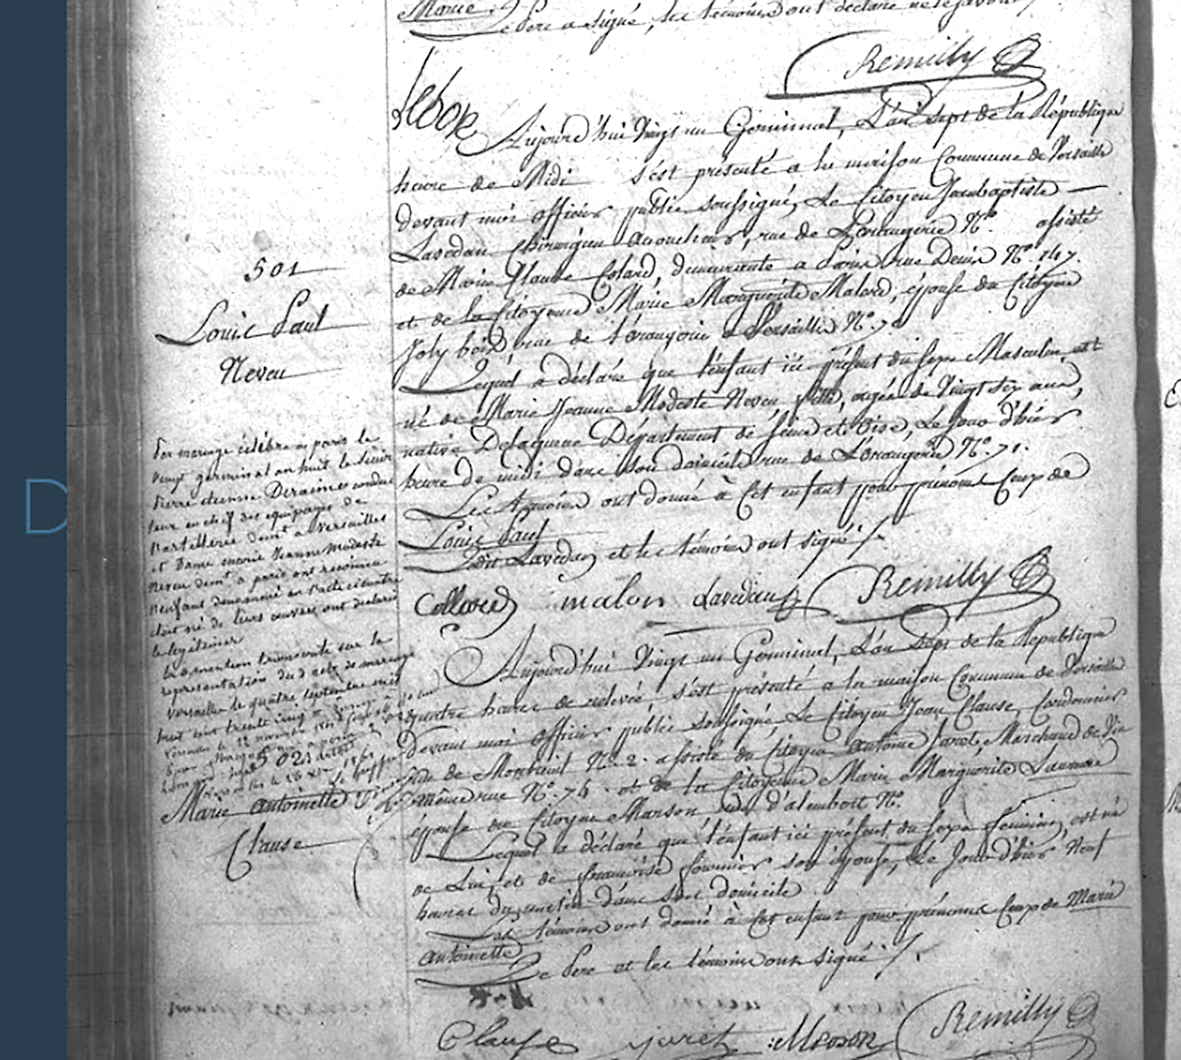 Marie
Le Père a signé, les témoins ont déclaré ne le savoir
Remilly
Aujourd'hui Vingt un Germinal, L'an Sept de la République
heure de Midi s'est présenté a la maison Commune de Versailles
devant moi officier public soussigné, Le Citoyen Jeanbaptiste
Lavedan Chirurgien Accoucheur, rue de L'orangerie N°. assisté
de Marie Claude Colard, demeurante a Paris rue Denis N°. 147.
et de la Citoyenne Marie Marguerite Malard, épouse du Citoyen
Joly bois, rue de l'orangerie a Versailles N°. 7
Lequel a déclaré que l'enfant ici présent du sexe Masculin est
né de Marie Jeanne Modeste Neveu fille, agée de Vingt six ans,
native Département de Seine et Oise, Le Jour d'hier
heure de midi dans son domicile rue de L'orangerie N°. 71.
Les témoins ont donné à Cet enfant pour prénoms Ceux de
Louis Paul
Ledit Lavedan et les témoins ont signé
Collared malon Lavedan Remilly
501
Louis Paul
Neveu
Par mariage célébré a paris le
vingt germinal an huit le sieur
Pierre etienne Deraine conduc
teur en chef des équipages de
l'artillerie demt. a Versailles
et Dame marie Jeanne modeste
neveu demt. a paris ont reconnu
l'enfant dénommé en l'acte ci contre
être né de leurs œuvres ont déclaré
le légitimer
la mention transcrite sur la
représentation du d. acte de mariage
versailles le quatre septembre mil
huit cent trente cinq
Aujourd'hui Vingt un Germinal, L'an Sept de la République
quatre heures de relevée, s'est présenté a la maison Commune de Versailles
Devant moi officier public soussigné Le Citoyen Jean Clause, Cordonnier
rue de Montreuil N°. 2. assisté du Citoyen Antoine Jaret, Marchand de Vin
même rue N°. 74. et de la Citoyenne Marie Marguerite
épouse du Citoyen Marson, d'alembert N°.
Lequel a déclaré que l'enfant ici présent du sexe féminin, est né
de Lui, et de françoise fournier son épouse, Le Jour d'hier Neuf
heures du matin dans son domicile.
Les témoins ont donné à Cet enfant pour prénoms Ceux de Marie
Antoinette
Le Pere et les témoins ont signé
502
Marie Antoinette
Clause
Clause jaret Remilly
D